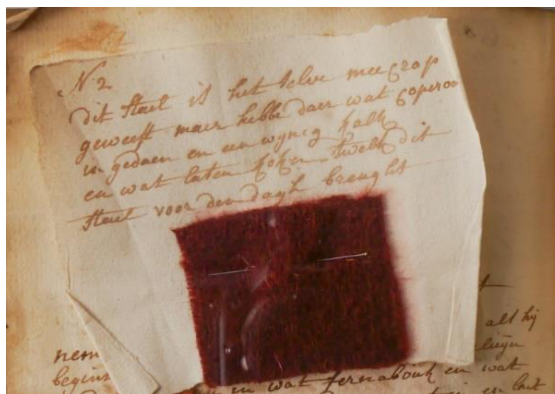 N 2
dit stael is het selve mee crop
geweest maer hebbe daer wat coperoo
in gedaen en een wijnig kalk
en wat laten koken twelk dit
stael voor den dagh brenght
als hij
nem
begin
in wat fernabouk en wat
en laet